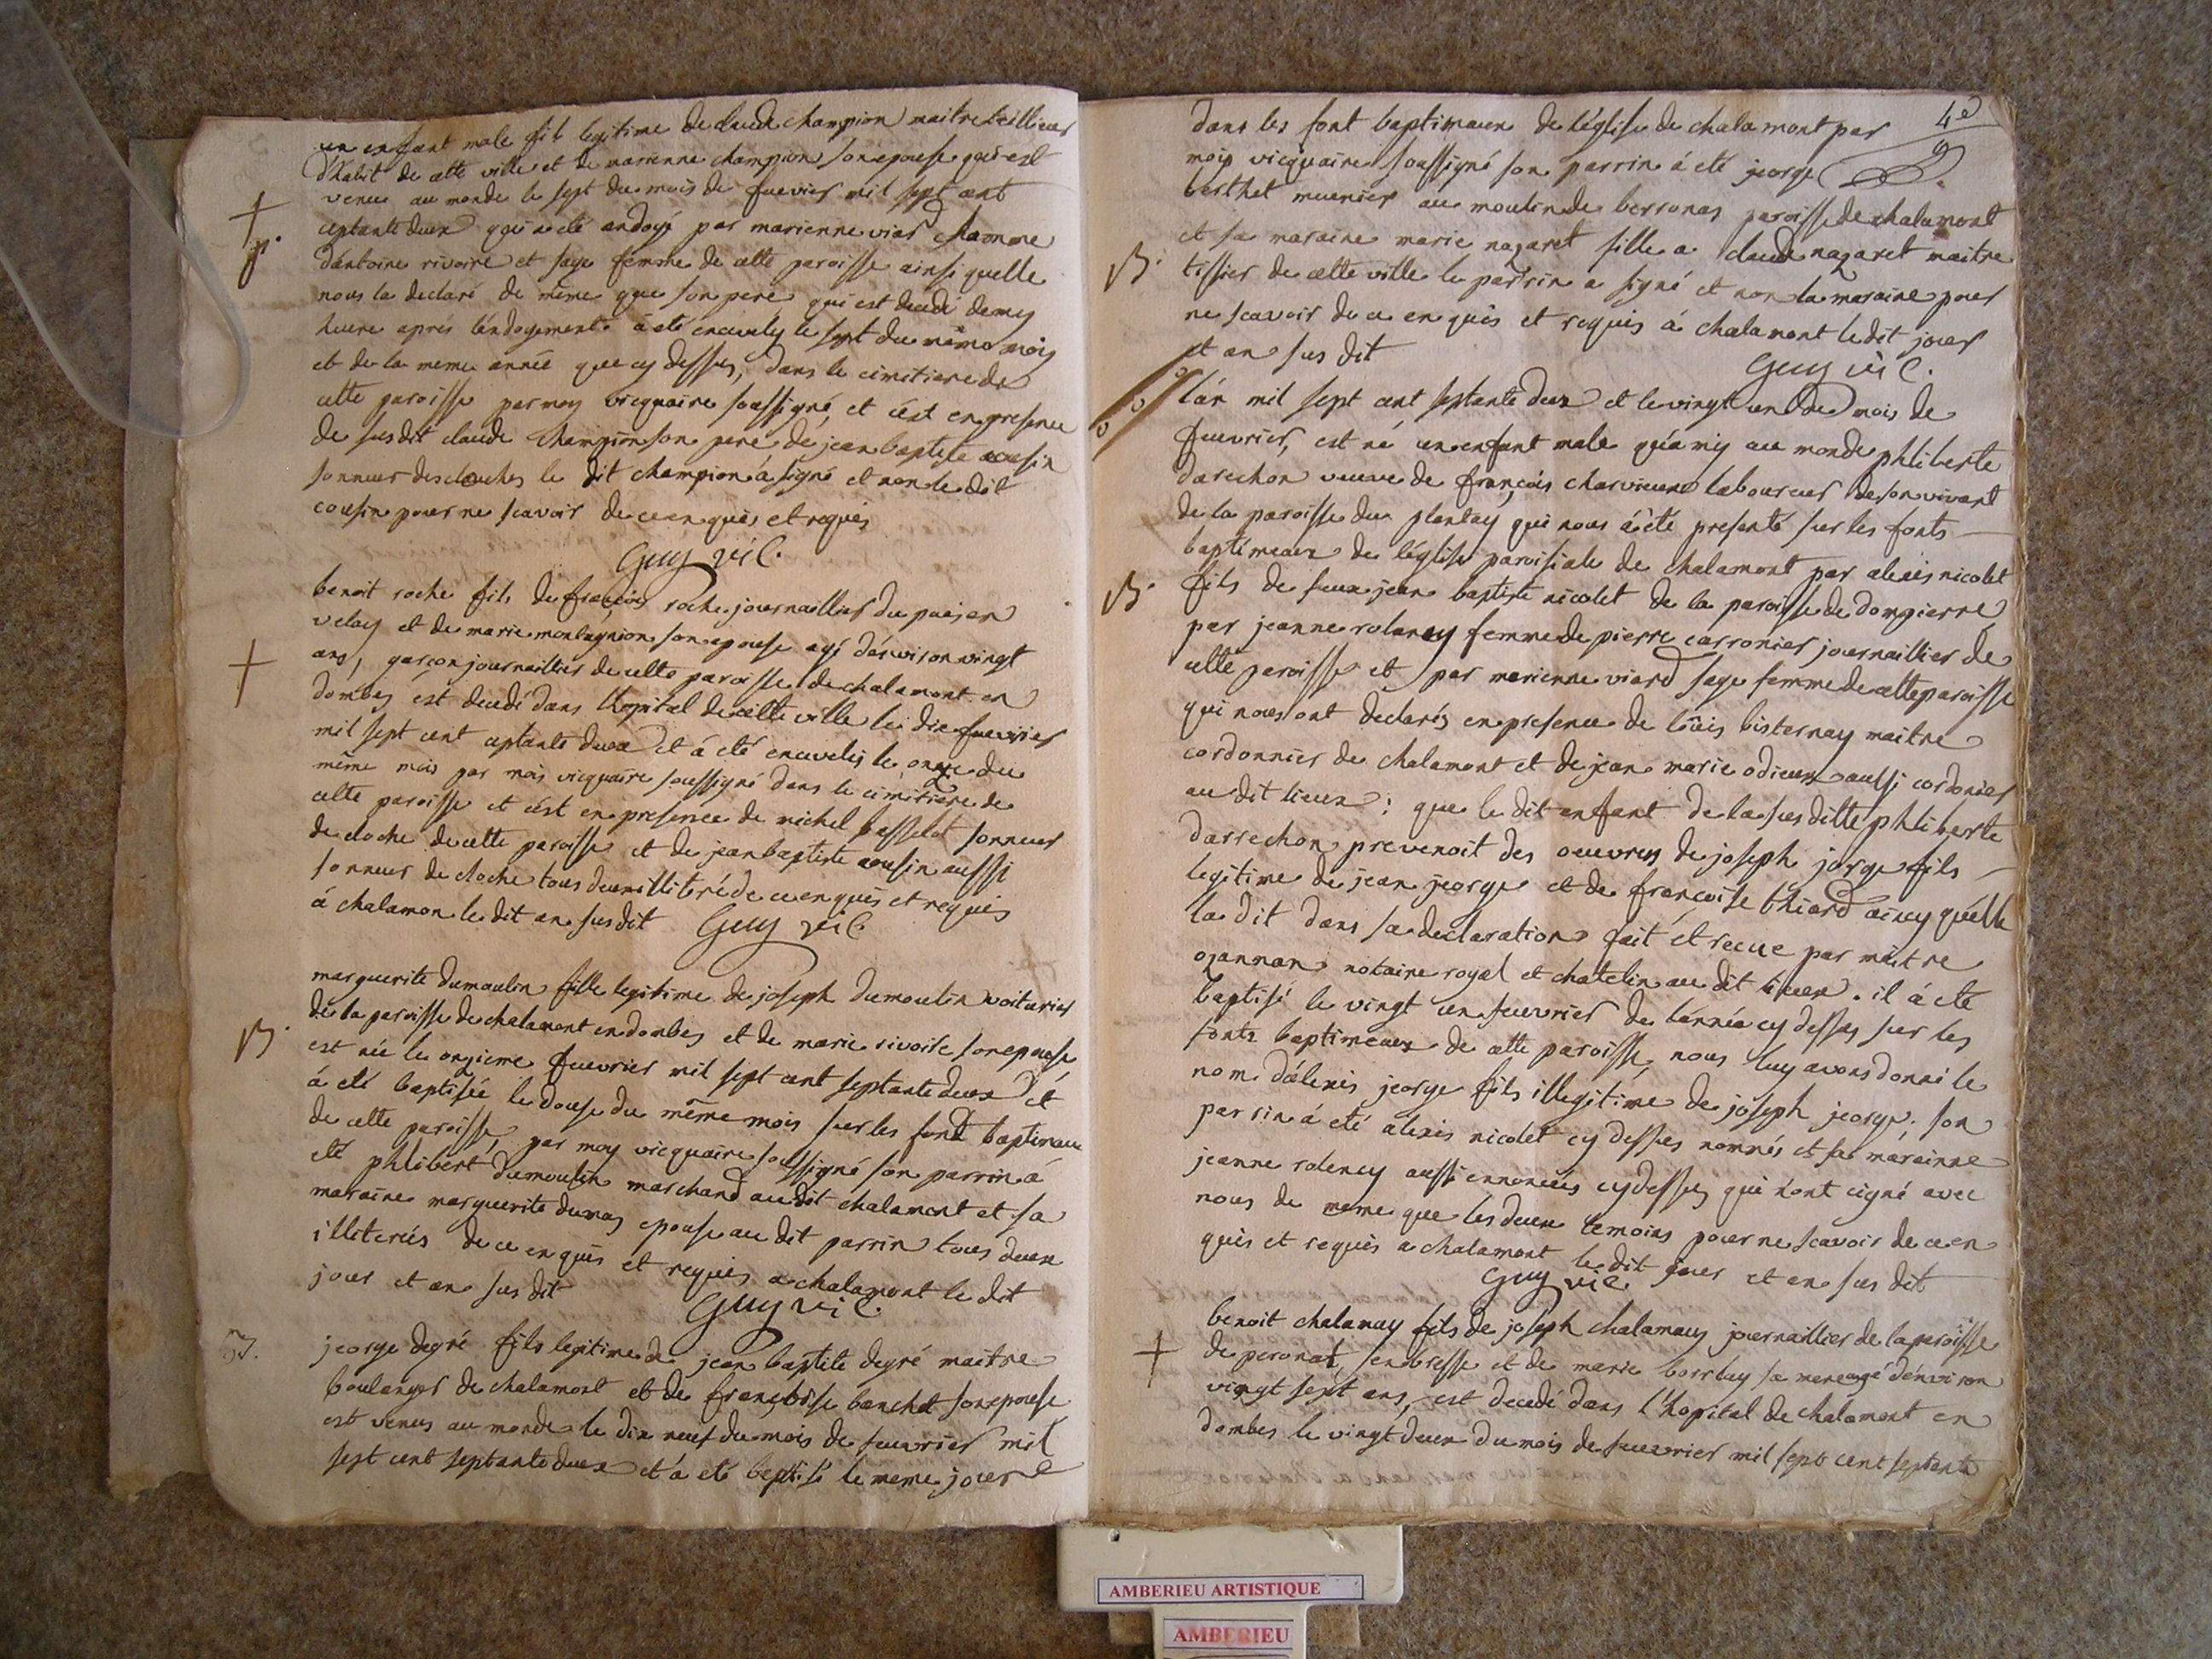 un enfant male fils legitime de claude champion maitre teillieur
d'habit de cette ville et de marienne champion son epouse qui est
venu au monde le sept du mois de fuevrier mil sept cent
ceptante deux qui a eté andoyé par marienne viard fhamme
d'antoine rivoire et sage femme de cette paroisse ainsi quelle
nous la declaré de même que son pere qui est decedé demy
heure aprés l'endoyement à eté encevely le sept du même mois
et de la meme année que cy dessus, dans le cimitiere de
cette paroisse par moy vicquaire soussigné, et c'est en presence
de susdit claude champion son peré de jean baptiste cousin
sonneur des clouches le dit champion á signé et non le dit
cousin pour ne scavoir de ce enquis et requis
Guy vic.
†
p.
benoit roche fils de francois roche journaillier du païs en
velay et de marie montagnion son epouse agé d'environ vingt
ans, garçon journaillier de cette paroisse de chalamont en
dombes est decedé dans l'hopital de cette ville le dix fuevrier
mil sept cent ceptante deux et á eté encevelis le onze du
même mois par mois vicquaire soussigné dans le cimitiere de
cette paroisse et c'est en presence de michel passelat sonneur
de cloche de cette paroisse et de jean baptiste cousin aussi
sonneur de cloche tous deux illiteré de ce enquis et requis
á chalamon le dit an susdit Guy vic
†
marguerite dumoulin fille legitime de joseph dumoulin voiturier
de la paroisse de chalamont en dombes et de marie rivoire son epouse
est née le onzieme fuevrier mil sept cent septante deux et
á eté baptisée le douse du même mois sur les font baptimaux
de cette paroisse, par moy vicquaire soussigné son parrin á
eté phlibert dumoulin marchand audit chalamont et sa
maraine marguerite dumas epouse au dit parrin tous deux
illiterés de ce enquis et requis a chalamont le dit
jour et an susdit
Guy vic.
B.
jeorge degré fils legitime de jean baptiste degré maitre
boulanger de chalamont et de francoise banchet son epouse
est venus au monde le dix neuf du mois de feuvrier mil
sept cent septante deux et á eté baptisé le meme jour
B.
4e
dans les font baptimaux de l'église de chalamont par
mois vicquaire soussigné son parrin á eté jeorge
berthet munier au moulin de berronas paroisse de chalamont
et sa maraine marie nazaret fille a claude nazaret maitre
tissier de cette ville le parrin a signé et non la maraine pour
ne scavoir de ce enquis et requis á chalamont le dit jour
et an sus dit
Guy vic.
B.
l'an mil sept cent septante deux et le vingt un de mois de
fuevrier, est né un enfant male qu'a mis au monde phliberte
darechon veuve de françois charvieux laboureur de son vivant
de la paroisse du plantay qui nous á eté presenté sur les fonts
baptimeaux de l'église paroisiale de chalamont par alexis nicolet
fils de feux jean baptiste nicolet de la paroisse de dompierre
par jeanne rolancy femme de pierre carronier journaillier de
cette paroisse et par marienne viard sage femme de cette paroisse
qui nous ont declarés en presence de loüis bisternay maitre
cordonnier de chalamont et de jean marie odieux aussi cordonier
au dit lieux: que le dit enfant de la sus ditte phliberte
darrechon prevenoit des oeuvres de joseph jorge fils
legitime de jean jeorge et de francoise thiard aincy qu'elle
la dit dans sa declaration fait et recue par maitre
ojannan notaire royal et chatelin au dit lieux. il á eté
baptisé le vingt un feuvrier de l'année cy dessus sur les
fonts baptimeaux de cette paroisse, nous luy avons donné le
nom d'alexis jeorge fils illegitime de joseph jeorge. son
parrin á eté alexis nicolet cy dessus nommés et sa marainne
jeanne rolency aussi ennoncés cy dessus qui n'ont cigné avec
nous de meme que les deux temoins pour ne scavoir de ce en
quis et requis a chalamont le dit jour et an sus dit
Guy vic.
B.
benoit chalamay fils de joseph chalamay journaillier de la paroisse
de peronas en bresse et de marie borrluy sa mere agé d'environ
vingt sept ans, est decedé dans l'hopital de chalamont en
dombes le vingt deux du mois de feuvrier mil sept cent septante
†
AMBERIEU ARTISTIQUE
AMBERIEU